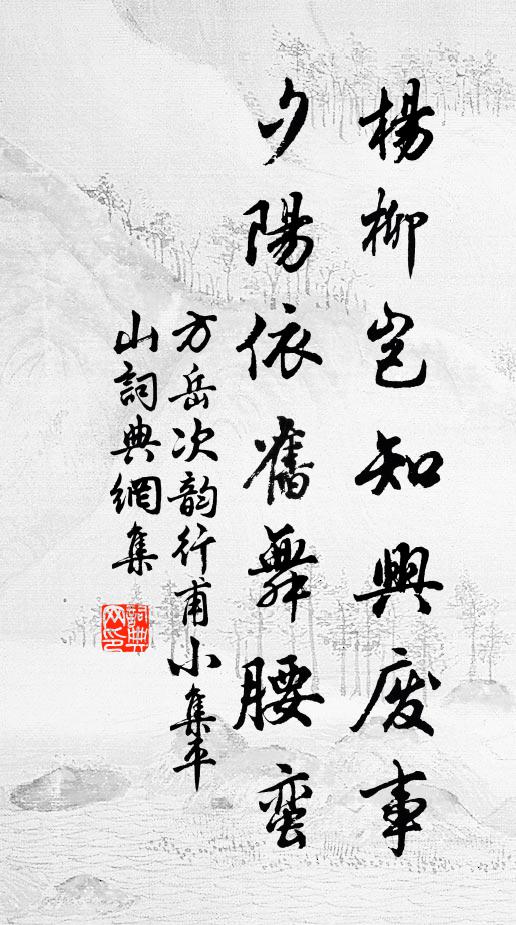 楊柳岂知興废事
夕陽依舊舞腰蛮
方岳次韵行甫小集平
山詞典網集
詞典
网印